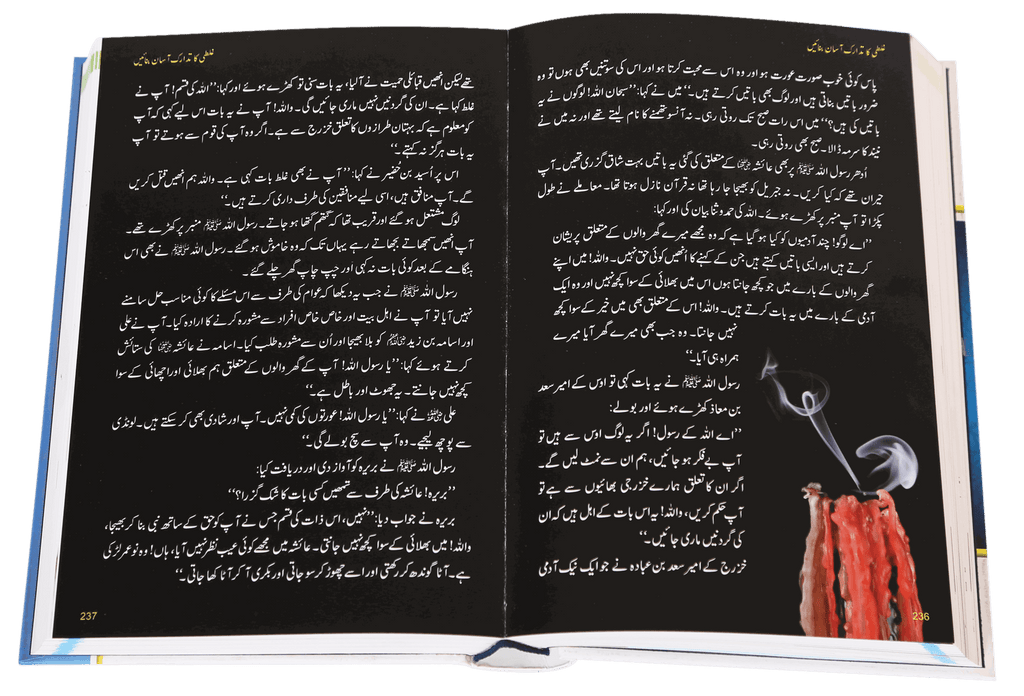 غلطی کا تدارک آسان بنائیں
پاس کوئی خوب صورت عورت ہو اور وہ اس سے محبت کرتا ہو اور اس کی سوتنیں بھی ہوں تو وہ
ضرور باتیں بناتی ہیں اور لوگ بھی باتیں کرتے ہیں۔‘‘ میں نے کہا: ’’سبحان اللہ! لوگوں نے یہ
باتیں کی ہیں؟‘‘ میں اس رات صبح تک روتی رہی۔ نہ آنسو تھمنے کا نام لیتے تھے اور نہ میں نے
نیند کا سرمہ ڈالا۔ صبح بھی روتی رہی۔
اُدھر رسول اللہ ﷺ پر بھی عائشہ رضی اللہ عنہا کے متعلق کی گئی یہ باتیں بہت شاق گزری تھیں۔ آپ
حیران تھے کہ کیا کریں۔ نہ جبریل کو بھیجا جا رہا تھا نہ قرآن نازل ہوتا تھا۔ معاملے نے طول
پکڑا تو آپ منبر پر کھڑے ہوئے۔ اللہ کی حمد و ثنا بیان کی اور کہا:
’’اے لوگو! چند آدمیوں کو کیا ہو گیا ہے کہ وہ مجھے میرے گھر والوں کے متعلق پریشان
کرتے ہیں اور ایسی باتیں کہتے ہیں جن کے کہنے کا انھیں کوئی حق نہیں۔ واللہ! میں اپنے
گھر والوں کے بارے میں جو کچھ جانتا ہوں اس میں بھلائی کے سوا کچھ نہیں اور وہ ایک
آدمی کے بارے میں یہ بات کرتے ہیں۔ واللہ! اس کے متعلق بھی میں خیر کے سوا کچھ
نہیں جانتا۔ وہ جب بھی میرے گھر آیا میرے
ہمراہ ہی آیا۔‘‘
رسول اللہ ﷺ نے یہ بات کہی تو اوس کے امیر سعد
بن معاذ کھڑے ہوئے اور بولے:
’’اے اللہ کے رسول! اگر یہ لوگ اوس سے ہیں تو
آپ بے فکر ہو جائیں، ہم ان سے نمٹ لیں گے۔
اگر ان کا تعلق ہمارے خزرجی بھائیوں سے ہے تو
آپ حکم کریں، واللہ! یہ اس بات کے اہل ہیں کہ ان
کی گردنیں ماری جائیں۔‘‘
خزرج کے امیر سعد بن عبادہ نے جو ایک نیک آدمی
236
غلطی کا تدارک آسان بنائیں
تھے لیکن انھیں قبائلی حمیت نے آلیا، یہ بات سنی تو کھڑے ہوئے اور کہا: ’’اللہ کی قسم! آپ نے
غلط کہا ہے۔ ان کی گردنیں نہیں ماری جائیں گی۔ واللہ! آپ نے یہ بات اس لیے کہی کہ آپ
کو معلوم ہے کہ بہتان طرازوں کا تعلق خزرج سے ہے۔ اگر وہ آپ کی قوم سے ہوتے تو آپ
یہ بات ہرگز نہ کہتے۔‘‘
اس پر اُسید بن حُضیر نے کہا: ’’آپ نے بھی غلط بات کہی ہے۔ واللہ ہم انھیں قتل کریں
گے۔ آپ منافق ہیں، اسی لیے منافقین کی طرف داری کرتے ہیں۔‘‘
لوگ مشتعل ہو گئے اور قریب تھا کہ گتھم گتھا ہو جاتے۔ رسول اللہ ﷺ منبر پر کھڑے تھے۔
آپ انھیں سمجھاتے بجھاتے رہے یہاں تک کہ وہ خاموش ہو گئے۔ رسول اللہ ﷺ نے بھی اس
ہنگامے کے بعد کوئی بات نہ کہی اور چپ چاپ گھر چلے گئے۔
رسول اللہ ﷺ نے جب یہ دیکھا کہ عوام کی طرف سے اس مسئلے کا کوئی مناسب حل سامنے
نہیں آیا تو آپ نے اہل بیت اور خاص خاص افراد سے مشورہ کرنے کا ارادہ کیا۔ آپ نے علی
اور اسامہ بن زید رضی اللہ عنہم کو بلا بھیجا اور اُن سے مشورہ طلب کیا۔ اسامہ نے عائشہ رضی اللہ عنہا کی ستائش
کرتے ہوئے کہا: ’’یا رسول اللہ! آپ کے گھر والوں کے متعلق ہم بھلائی اور اچھائی کے سوا
کچھ نہیں جانتے۔ یہ جھوٹ اور باطل ہے۔‘‘
علی رضی اللہ عنہ نے کہا: ’’یا رسول اللہ! عورتوں کی کمی نہیں۔ آپ اور شادی بھی کر سکتے ہیں۔ لونڈی
سے پوچھ لیجیے۔ وہ آپ سے سچ بولے گی۔‘‘
رسول اللہ ﷺ نے بریرہ کو آواز دی اور دریافت کیا:
’’بریرہ! عائشہ کی طرف سے تمھیں کسی بات کا شک گزرا؟‘‘
بریرہ نے جواب دیا: ’’نہیں، اس ذات کی قسم جس نے آپ کو حق کے ساتھ نبی بنا کر بھیجا،
واللہ! میں بھلائی کے سوا کچھ نہیں جانتی۔ عائشہ میں مجھے کوئی عیب نظر نہیں آیا، ہاں! وہ نوعمر لڑکی
ہے۔ آٹا گوندھ کر رکھتی اور اسے چھوڑ کر سو جاتی اور بکری آ کر آٹا کھا جاتی۔‘‘
237